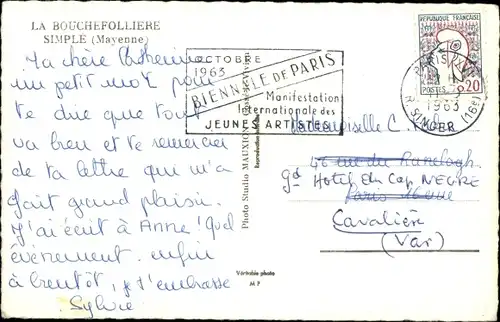 LA BOUCHEFOLLIERE
SIMPLE (Mayenne)
Ma chère Catherine
un petit mot pour
te dire que tout
va bien et te remercier
de ta lettre qui m'a
fait grand plaisir.
J'ai écrit à Anne! Quel
événement. enfin
à bientôt, je t'embrasse
Sylvie
OCTOBRE
1963
BIENNALE DE PARIS
Manifestation
Internationale des
JEUNES ARTISTES
Photo Studio MAUXION
Reproduction
Véritable photo
M P
REPUBLIQUE FRANÇAISE
POSTES 0,20
PARIS
1963
R. SINGER (16e)
Mademoiselle C.
46 rue du Ranelagh
gd Hotel du Cap NEGRE
Paris 16eme
Cavalière
(Var)